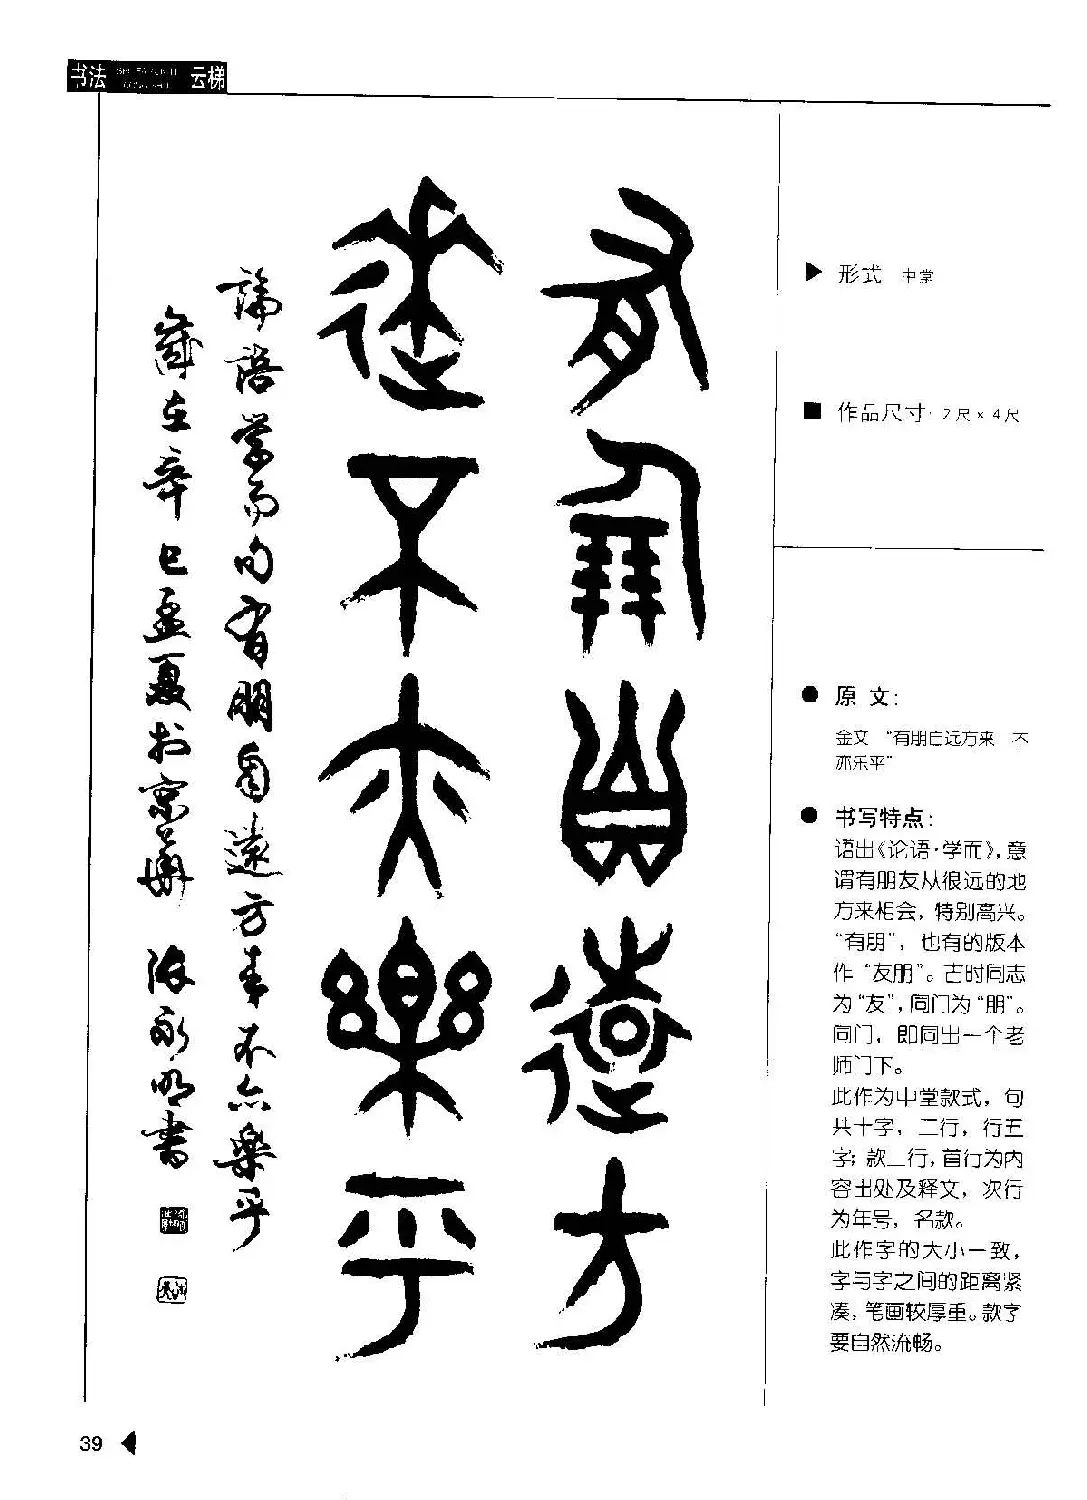 书法 云梯
有朋自远方
来不亦乐乎
論語學而句有朋自遠方来不亦樂乎
歲在辛巳孟夏于京華 永明書
▶ 形式 中堂
■ 作品尺寸·2尺×4尺
● 原 文:
金文 “有朋自远方来 不
亦乐乎”
● 书写特点:
语出《论语·学而》,意
谓有朋友从很远的地
方来相会,特别高兴。
“有朋”,也有的版本
作“友朋”。古时同志
为“友”,同门为“朋”。
同门,即同出一个老
师门下。
此作为中堂款式,句
共十字,二行,行五
字;款二行,首行为内
容出处及释文,次行
为年号,名款。
此作字的大小一致,
字与字之间的距离紧
凑,笔画较厚重。款字
要自然流畅。
39